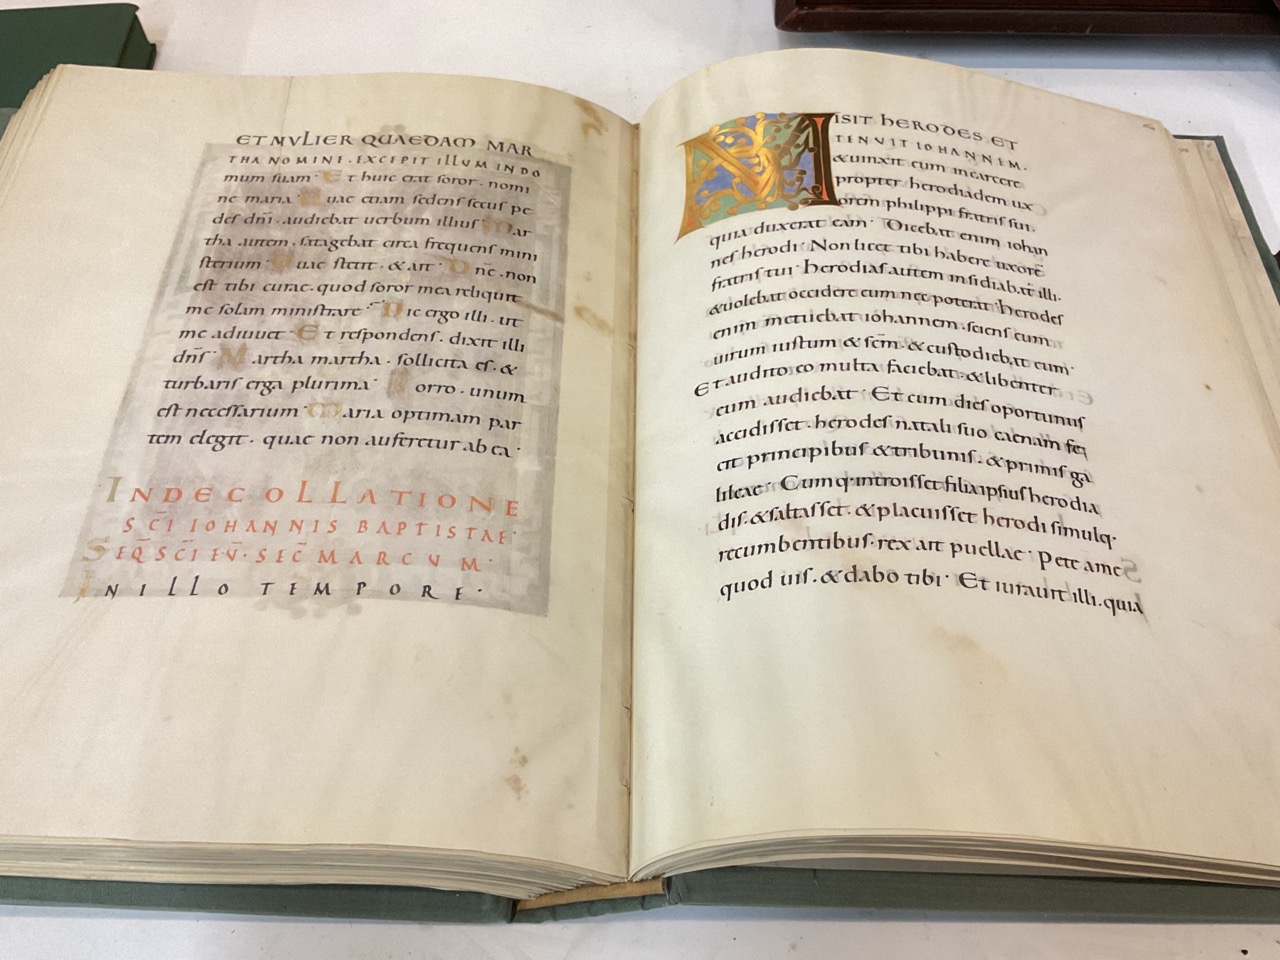 ET MVLIER QUAEDAM MAR
THA NOMINE. EXCEPIT ILLUM IN DO
mum suam· Et huic erat soror. nomi
ne maria Quae etiam sedens secus pe
des dn̄i. audiebat uerbum illius Mar
tha autem. satagebat circa frequens mini
sterium· Quae stetit. & ait· Dn̄e. non
est tibi curae. quod soror mea reliquit
me solam ministrare· Dic ergo illi. ut
me adiuuet· Et respondens. dixit illi
dn̄s· Martha martha. sollicita es. &
turbaris erga plurima· Porro. unum
est necessarium· Maria optimam par
tem elegit. quae non auferetur ab ea·
IN DECOLLATIONE
SC̄I IOHANNIS BAPTISTAE·
SEQ̄ SC̄I EV̄· SEC̄ MARCVM·
IN ILLO TEMPORE·
MISIT HERODES ET
TENVIT IOHANNEM.
& uinxit eum in carcere
propter herodiadem ux
orem philippi fratris sui.
quia duxerat eam· Dicebat enim iohan
nes herodi· Non licet tibi habere uxorē
fratris tui· Herodias autem insidiabat̄ illi.
& uolebat occidere eum nec poterat· herodes
enim metuebat iohannem. sciens eum
uirum iustum & sc̄m. & custodiebat eum·
Et audito eo multa faciebat. & libenter
eum audiebat· Et cum dies oportunus
accidisset. herodes natali suo caenam fe
cit principibus & tribunis. & primis ga
lileae· Cumq· introisset filia ipsius herodia
dis. & saltasset. & placuisset herodi simulq·
recumbentibus. rex ait puellae· Pete a me
quod uis. & dabo tibi· Et iurauit illi. quia